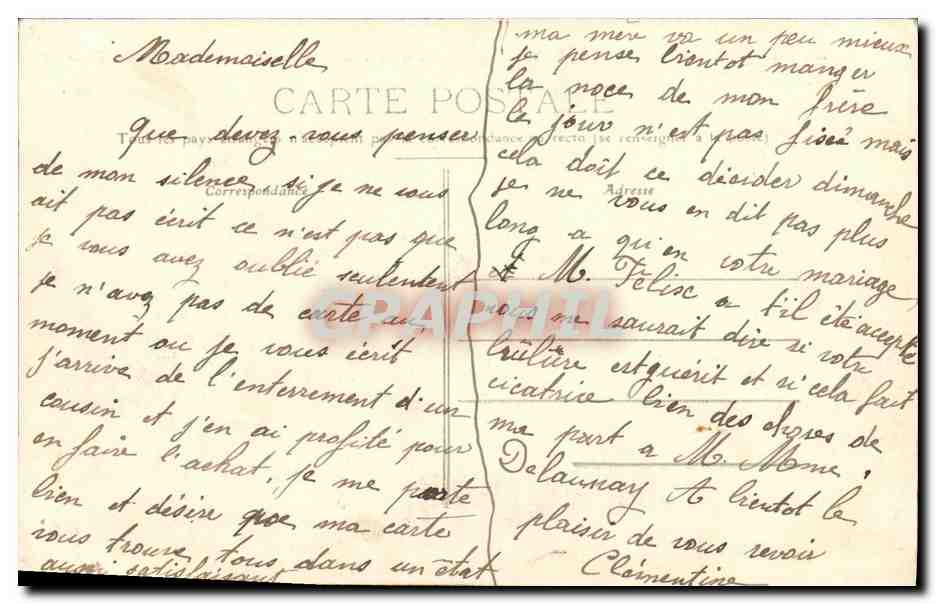 Mademoiselle
CARTE POSTALE
Tous les pays étrangers n'acceptent pas la correspondance au recto (se renseigner à la poste)
Correspondance
Adresse
que devez vous penser
de mon silence si je ne vous
ait pas écrit ce n'est pas que
je vous avez oublié seulentent
je n'avez pas de carte au
moment ou je vous écrit
j'arrive de l'enterrement d'un
cousin et j'en ai profité pour
en faire l'achat, je me porte
bien et désire que ma carte
vous trouve tous dans un état
aussi satisfaisant
ma mère va un peu mieux
je pense bientot manger
la noce de mon frère
le jour n'est pas fixé mais
cela doit ce décider dimanche
je ne vous en dit pas plus
long a qu'en votre mariage
M. Félix a t'il été accepté
vous me saurait dire si votre
brûlure est guérit et si cela fait
cicatrice bien des choses de
ma part a M. Mme
Delaunay A bientot le
plaisir de vous revoir
Clémentine
CPAPHIL